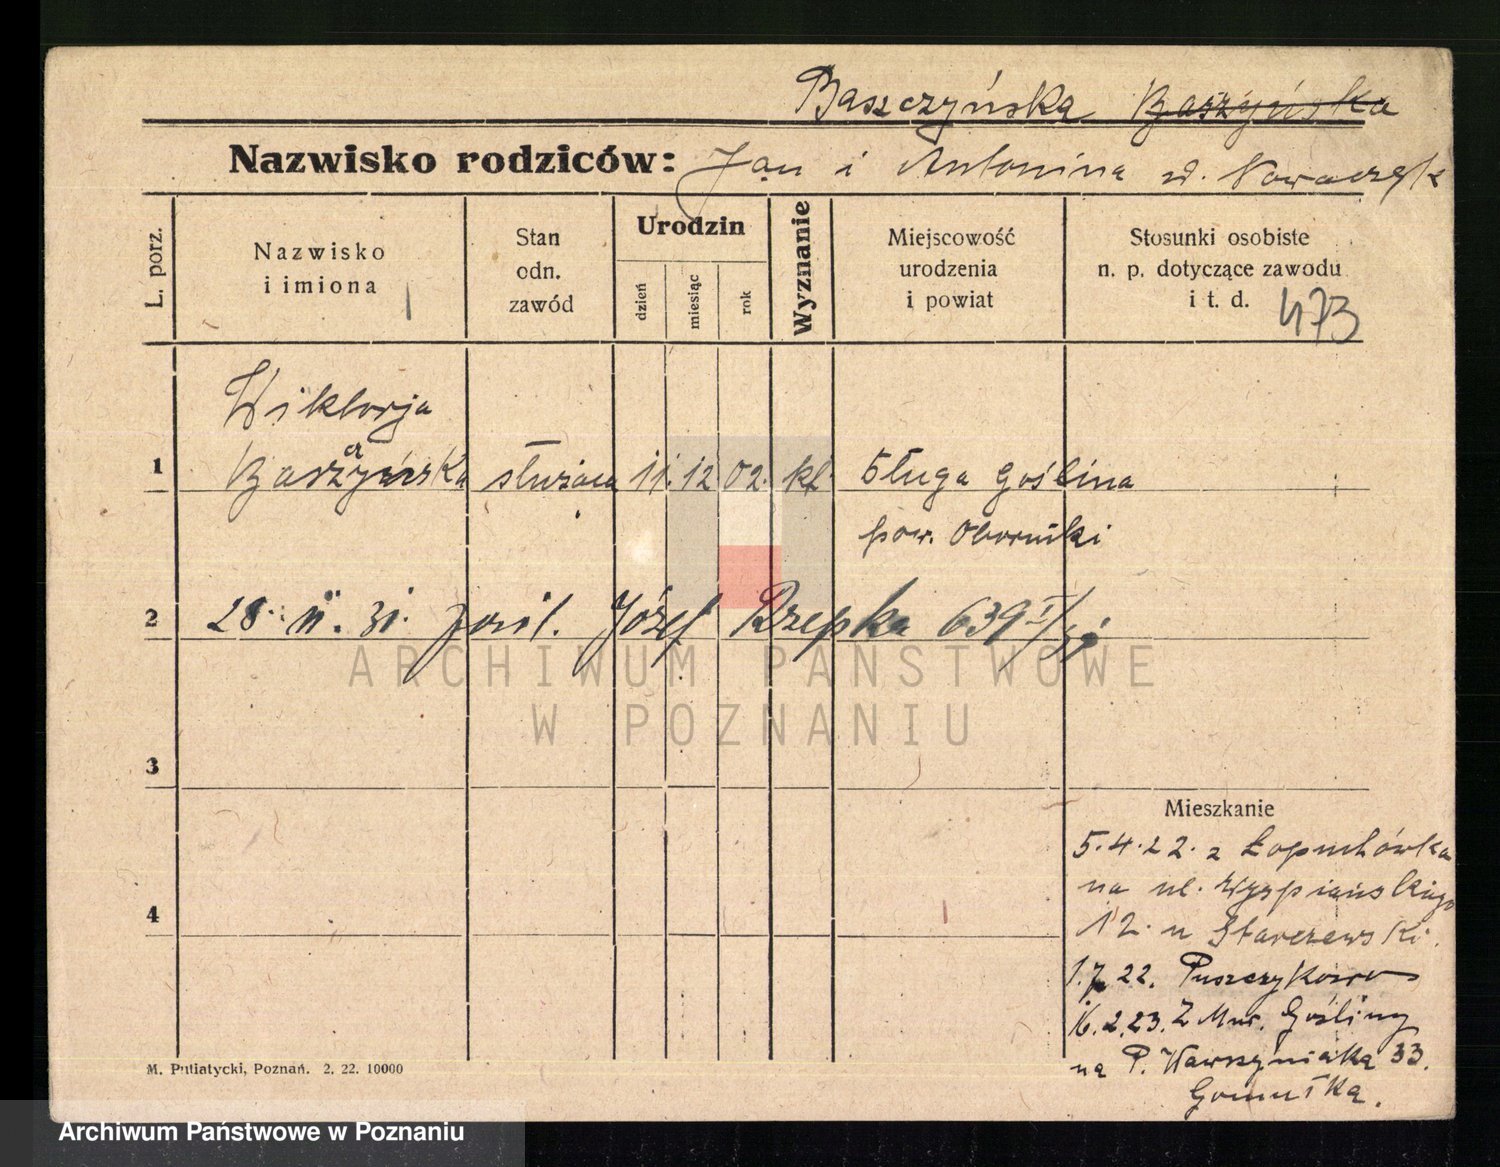 Baszczyńska Baszyńska
Nazwisko rodziców: Jan i Antonina
L. porz.
Nazwisko
i imiona
Stan
odn.
zawód
Urodzin
dzień
miesiąc
rok
Wyznanie
Miejscowość
urodzenia
i powiat
Stosunki osobiste
n. p. dotyczące zawodu
i t. d.
473
Wiktorja
1 Baszyńska służąca 11. 12 02. kł. Długa Goślina
pow. Oborniki
2 28. 11. 31. Józef Rzepka 639
ARCHIWUM PAŃSTWOWE
W POZNANIU
3
Mieszkanie
5.4.22. z Łopuchówka
na ul. Wyspiańskiego
4
12. u Starczewski.
1.7.22. Puszczykowo
16.2.23. Z Mur. Gośliny
na P. Wawrzyniaka 33.
M. Putiatycki, Poznań. 2. 22. 10000
Gomułka.
Archiwum Państwowe w Poznaniu